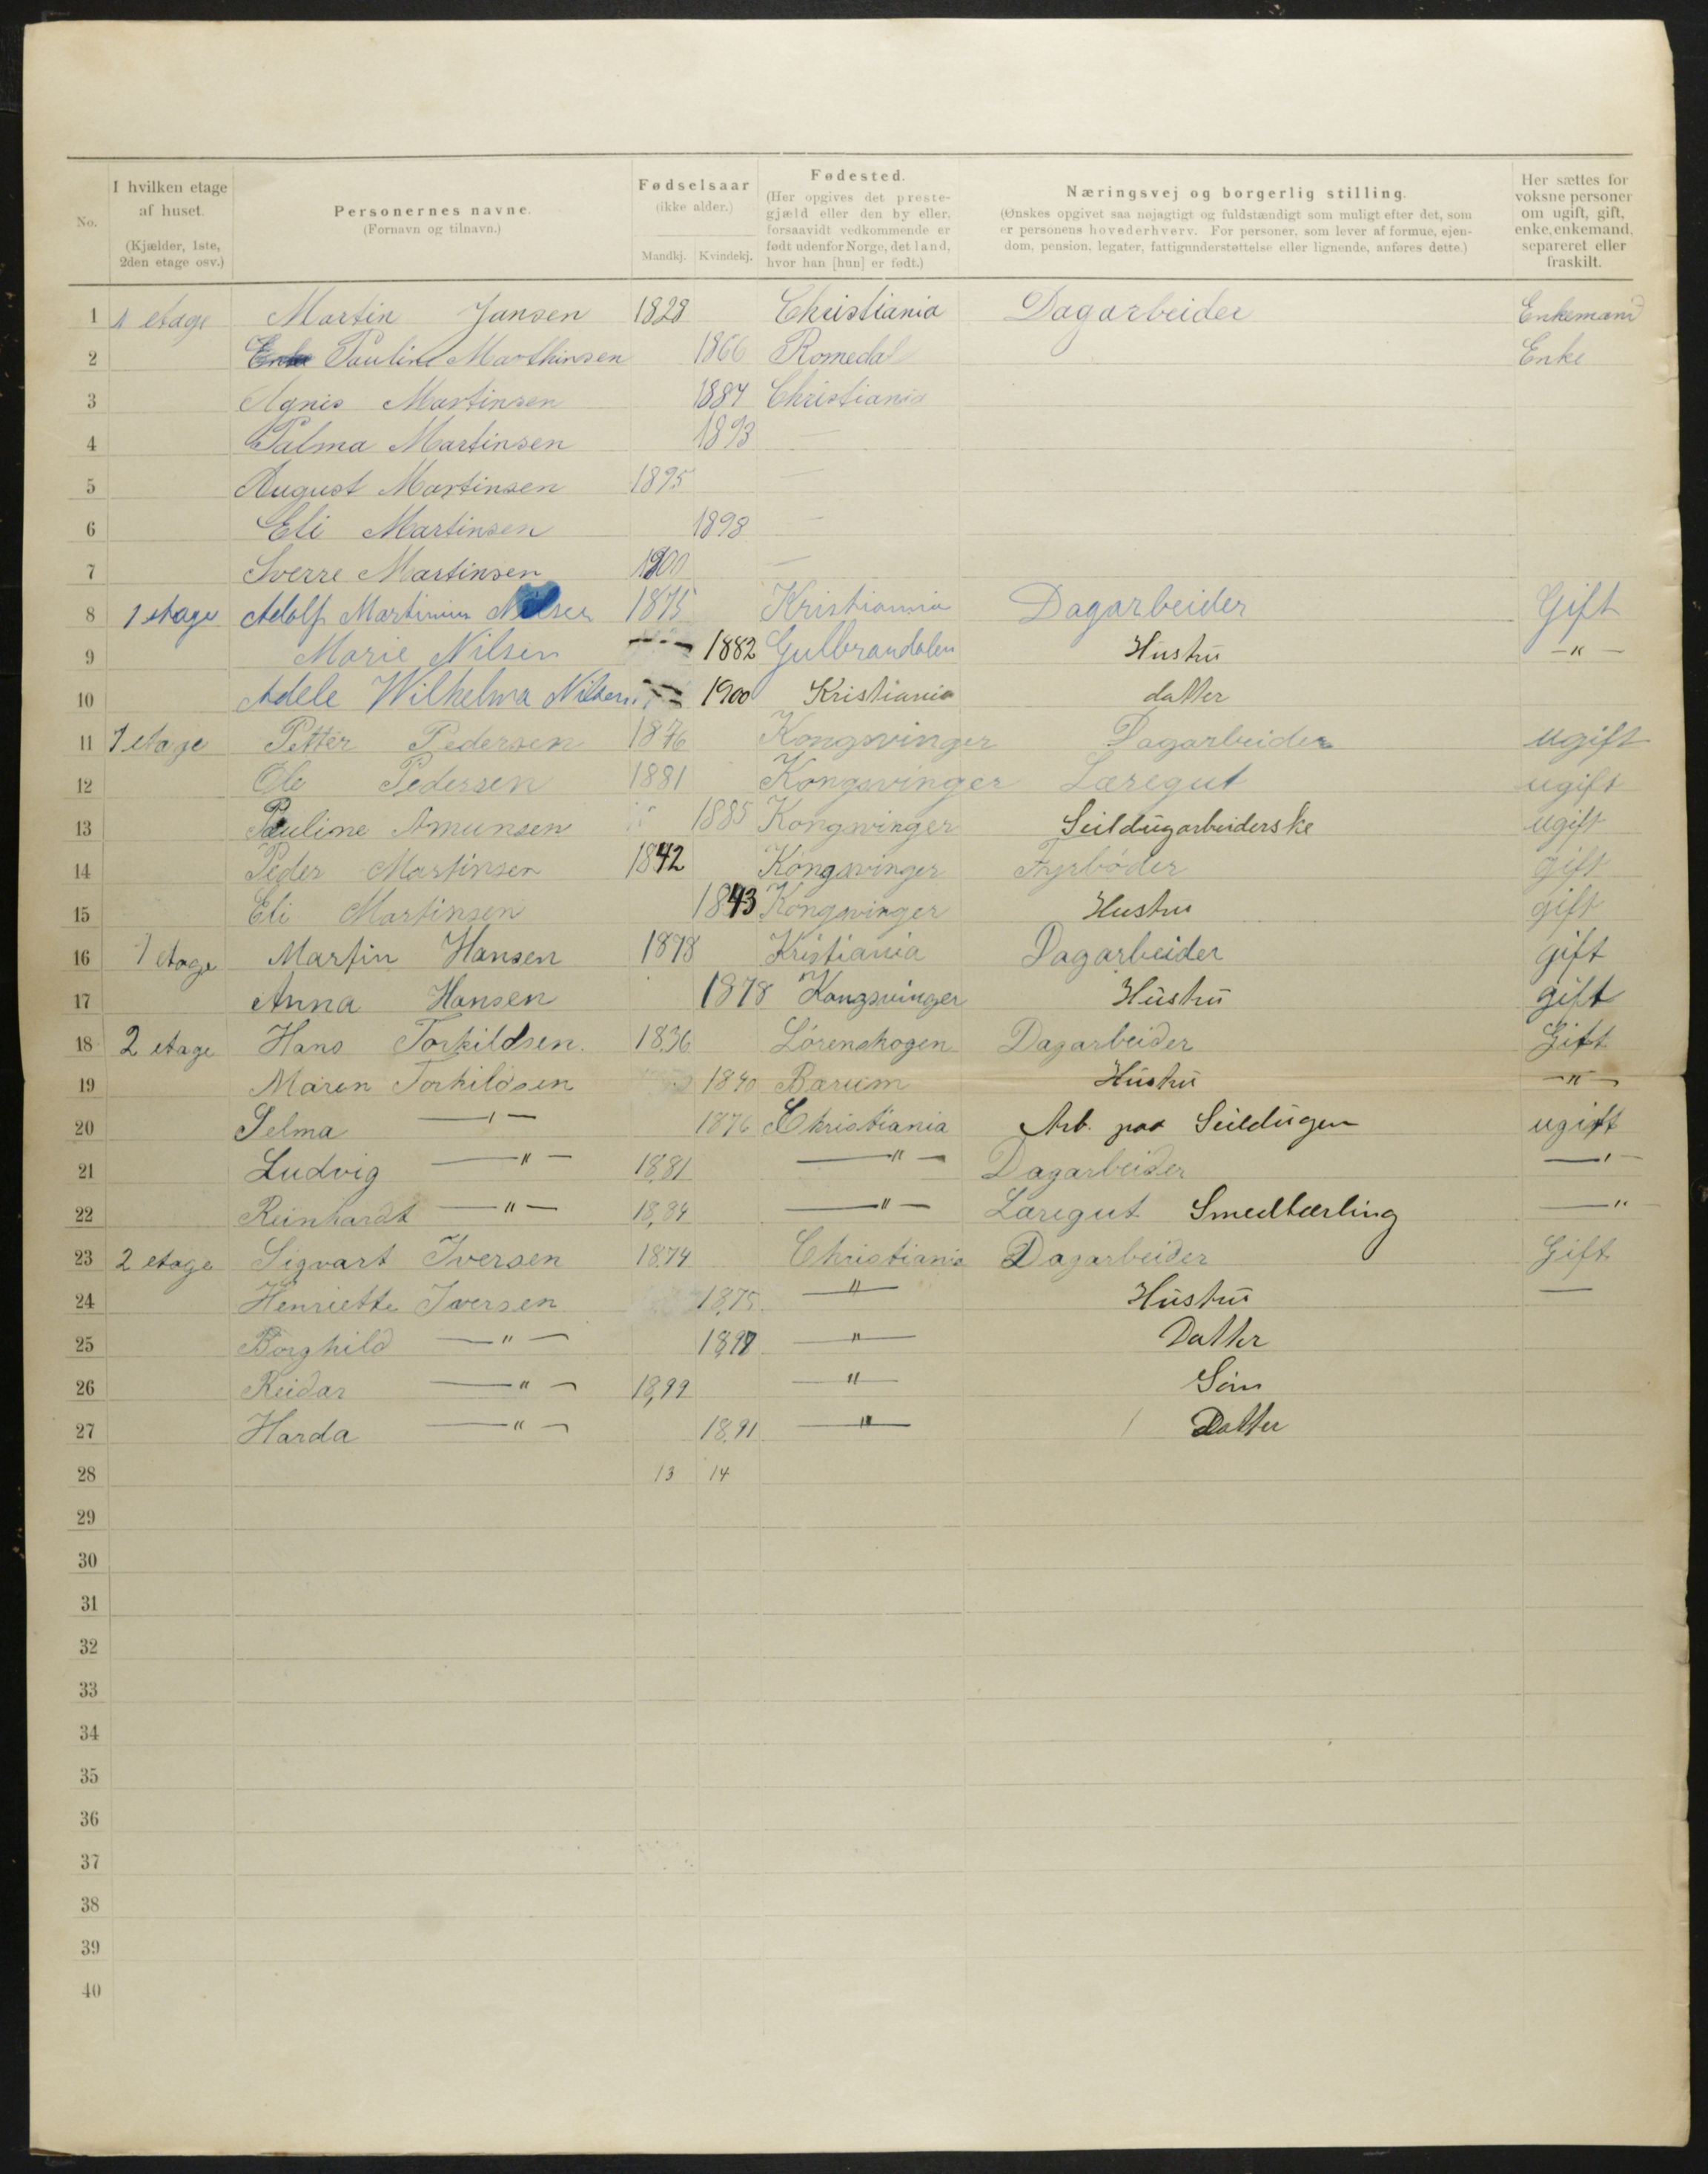 No. | I hvilken etage af huset. (Kjælder, 1ste, 2den etage osv.) | Personernes navne. (Fornavn og tilnavn.) | Fødselsaar (ikke alder.) Mandkj. Kvindekj. | Fødested. (Her opgives det prestegjæld eller den by eller, forsaavidt vedkommende er født udenfor Norge, det land, hvor han [hun] er født.) | Næringsvej og borgerlig stilling. (Ønskes opgivet saa nøjagtigt og fuldstændigt som muligt efter det, som er personens hovederhverv. For personer, som lever af formue, ejendom, pension, legater, fattigunderstøttelse eller lignende, anføres dette.) | Her sættes for voksne personer om ugift, gift, enke, enkemand, separeret eller fraskilt.
1 1 etage Martin Jansen 1828 Christiania Dagarbeider Enkemand
2 Enke Pauline Marthinsen 1866 Romedal Enke
3 Agnis Martinsen 1884 Christiania
4 Palma Martinsen 1893 —
5 August Martinsen 1895 —
6 Eli Martinsen 1898 —
7 Sverre Martinsen 1900 —
8 1 etage Adolf Martinius Nilsen 1875 Kristiannia Dagarbeider Gift
9 Marie Nilsen 1882 Gulbrandalen Hustru —"—
10 Adele Wilhelma Nilsen 1900 Kristiania datter
11 1 etage Petter Pedersen 1876 Kongsvinger Dagarbeider ugift
12 Ole Pedersen 1881 Kongsvinger Læregut ugift
13 Pauline Amunsen 1885 Kongsvinger Seildugarbeiderske ugift
14 Peder Martinsen 1842 Kongsvinger Fyrbøder gift
15 Eli Martinsen 1843 Kongsvinger Hustru gift
16 1 etage Martin Hansen 1878 Kristiania Dagarbeider gift
17 Anna Hansen 1878 Kongsvinger Hustru gift
18 2 etage Hans Torkildsen 1836 Lørenskogen Dagarbeider Gift
19 Maren Torkildsen 1840 Bærum Hustru —"—
20 Selma —"— 1876 Christiania Arb. paa Seildugen ugift
21 Ludvig —"— 1881 —"— Dagarbeider —"—
22 Reinhardt —"— 18,84 —"— Læregut Smedlærling —"
23 2 etage Sigvart Iversen 1874 Christiania Dagarbeider Gift
24 Henriette Iversen 18,75 —"— Hustru —
25 Borghild —"— 1898 —"— Datter
26 Reidar —"— 18,99 —"— Søn
27 Harda —"— 18,91 —"— Datter
28 13 14
29
30
31
32
33
34
35
36
37
38
39
40